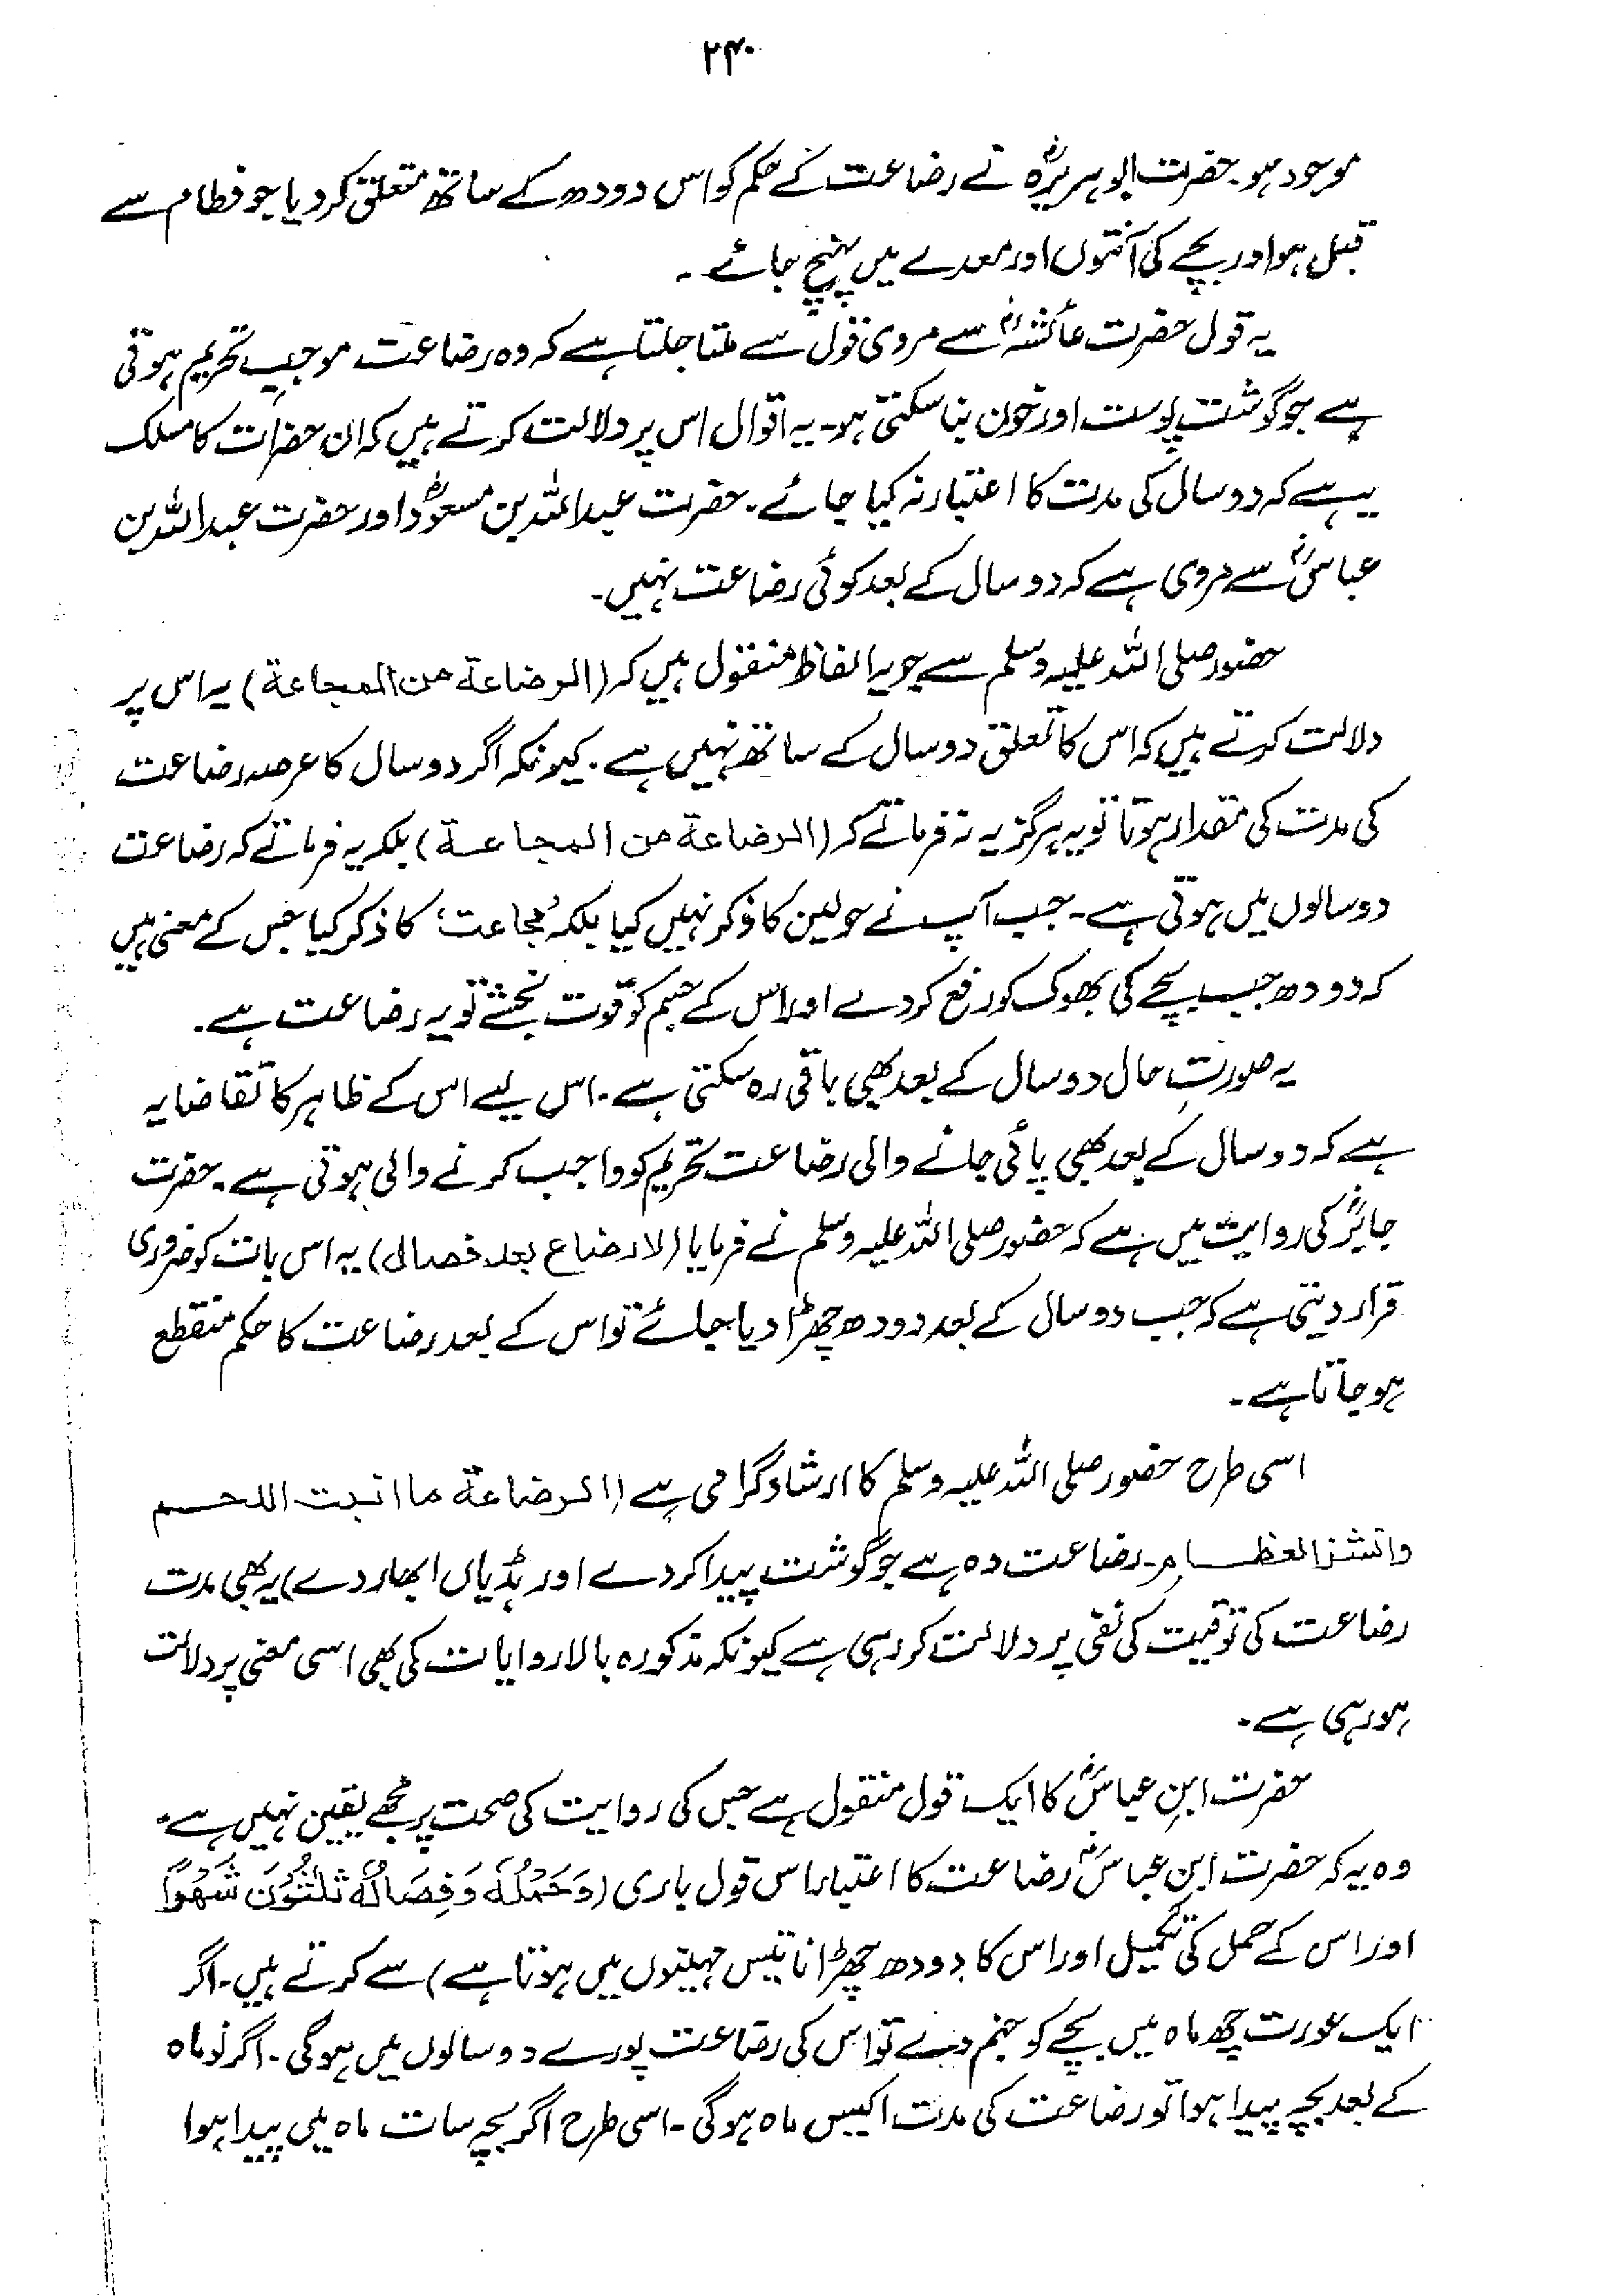 ۲۴۰
موجود ہو۔ حضرت ابو ہریرہؓ نے رضاعت کے حکم کو اس دودھ کے ساتھ متعلق کر دیا جو فطام سے
قبل ہو اور بچے کی آنتوں اور معدے میں پہنچ جائے۔
یہ قول حضرت عائشہؓ سے مروی قول سے ملتا جلتا ہے کہ وہ رضاعت موجبِ تحریم ہوتی
ہے جو گوشت پوست اور خون بنا سکتی ہو۔ یہ اقوال اس پر دلالت کرتے ہیں کہ ان حضرات کا مسلک
یہ ہے کہ دو سال کی مدت کا اعتبار نہ کیا جائے۔ حضرت عبداللہ بن مسعودؓ اور حضرت عبداللہ بن
عباسؓ سے مروی ہے کہ دو سال کے بعد کوئی رضاعت نہیں۔
حضور صلی اللہ علیہ وسلم سے جو یہ الفاظ منقول ہیں کہ (الرضاعة من المجاعة) یہ اس پر
دلالت کرتے ہیں کہ اس کا تعلق دو سال کے ساتھ نہیں ہے۔ کیونکہ اگر دو سال کا عرصہ رضاعت
کی مدت کی مقدار ہوتا تو یہ ہرگز یہ نہ فرماتے کہ (الرضاعة من المجاعة) بلکہ یہ فرماتے کہ رضاعت
دو سالوں میں ہوتی ہے۔ جب آپ نے حولین کا ذکر نہیں کیا بلکہ ’مجاعت‘ کا ذکر کیا جس کے معنی ہیں
کہ دودھ جب بچے کی بھوک کو رفع کر دے اور اس کے جسم کو قوت بخشے تو یہ رضاعت ہے۔
یہ صورتِ حال دو سال کے بعد بھی باقی رہ سکتی ہے۔ اس لیے اس کے ظاہر کا تقاضا یہ
ہے کہ دو سال کے بعد بھی پائی جانے والی رضاعت تحریم کو واجب کرنے والی ہوتی ہے۔ حضرت
جابرؓ کی روایت میں ہے کہ حضور صلی اللہ علیہ وسلم نے فرمایا (لا رضاع بعد فصال) یہ اس بات کو ضروری
قرار دیتی ہے کہ جب دو سال کے بعد دودھ چھڑا دیا جائے تو اس کے بعد رضاعت کا حکم منقطع
ہو جاتا ہے۔
اسی طرح حضور صلی اللہ علیہ وسلم کا ارشاد گرامی ہے (الرضاعة ما انبت اللحم
وانشز العظام۔ رضاعت وہ ہے جو گوشت پیدا کر دے اور ہڈیاں ابھار دے) یہ بھی مدت
رضاعت کی توقیت کی نفی پر دلالت کر رہی ہے کیونکہ مذکورہ بالا روایات کی بھی اسی معنی پر دلالت
ہو رہی ہے۔
حضرت ابنِ عباسؓ کا ایک قول منقول ہے جس کی روایت کی صحت پر مجھے یقین نہیں ہے۔
وہ یہ کہ حضرت ابن عباسؓ رضاعت کا اعتبار اس قول باری (وَحَمْلُهٗ وَفِصَالُهٗ ثَلٰثُوْنَ شَهْرًا
اور اس کے حمل کی تکمیل اور اس کا دودھ چھڑانا تیس مہینوں میں ہوتا ہے) سے کرتے ہیں۔ اگر
ایک عورت چھ ماہ میں بچے کو جنم دے تو اس کی رضاعت پورے دو سالوں میں ہوگی۔ اگر نو ماہ
کے بعد بچہ پیدا ہوا تو رضاعت کی مدت اکیس ماہ ہوگی۔ اسی طرح اگر بچہ سات ماہ میں پیدا ہوا